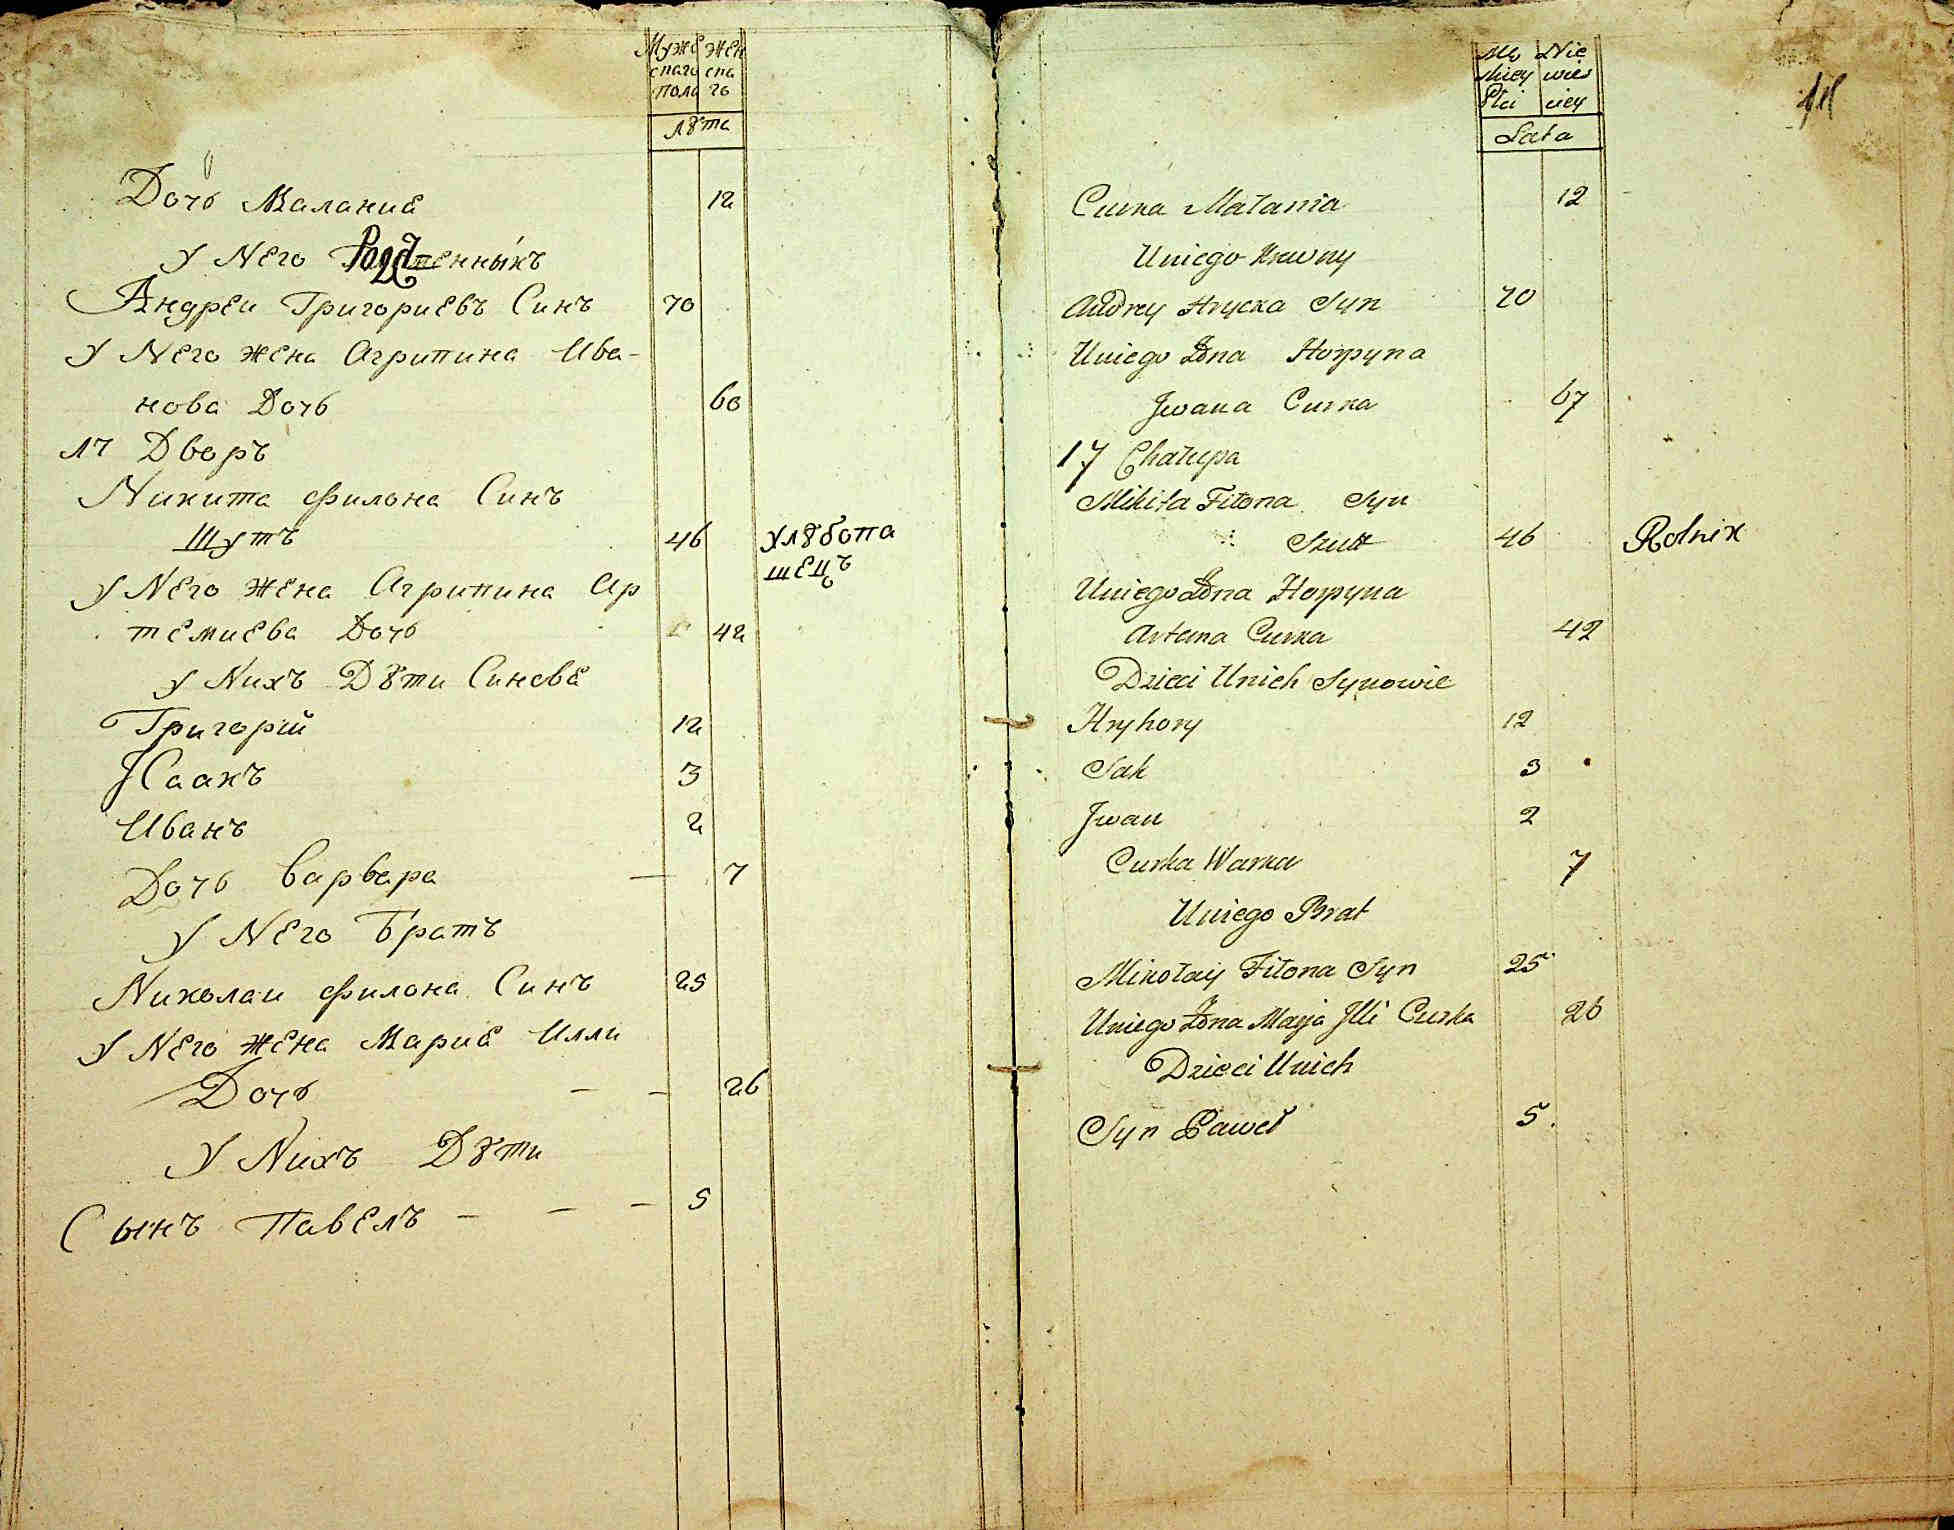 Муже Жен
скаго ска
пола го
лѣта
Дочь Маланиѣ 12
У Него Родственныхъ
Андреи Григориевъ Синъ 70
У Него жена Агрипина Ива-
нова Дочь 60
17 Дворъ
Никита Филона Синъ
Шутъ 46 хлѣбопа
шецъ
У Него жена Агрипина Ар
темиева Дочь 42
У Нихъ Дѣти Синовѣ
Григорій 12
Jсаакъ 3
Иванъ 2
Дочь Варвара — 7
У Него Братъ
Николаи Филона Синъ 25
У Него жена Мариѣ Илли
Дочь — — 26
У Нихъ Дѣти
Сынъ Павелъ — — — 5
Mę Nie
skiey wies
Płci ciey
Lata
Curka Małania 12
Uniego Krewny
Andrey Hrycka Syn 70
Uniego Żona Horpyna
Jwana Curka 67
17 Chałupa
Mikita Filona Syn
Szutt 46 Rolnik
Uniego Żona Horpyna
Artema Curka 42
Dzieci Unich Synowie
Hryhory 12
Sak 3
Jwan 2
Curka Warka 7
Uniego Brat
Mikołay Filona Syn 25
Uniego Żona Marja Jlli Curka 26
Dzieci Unich
Syn Paweł 5